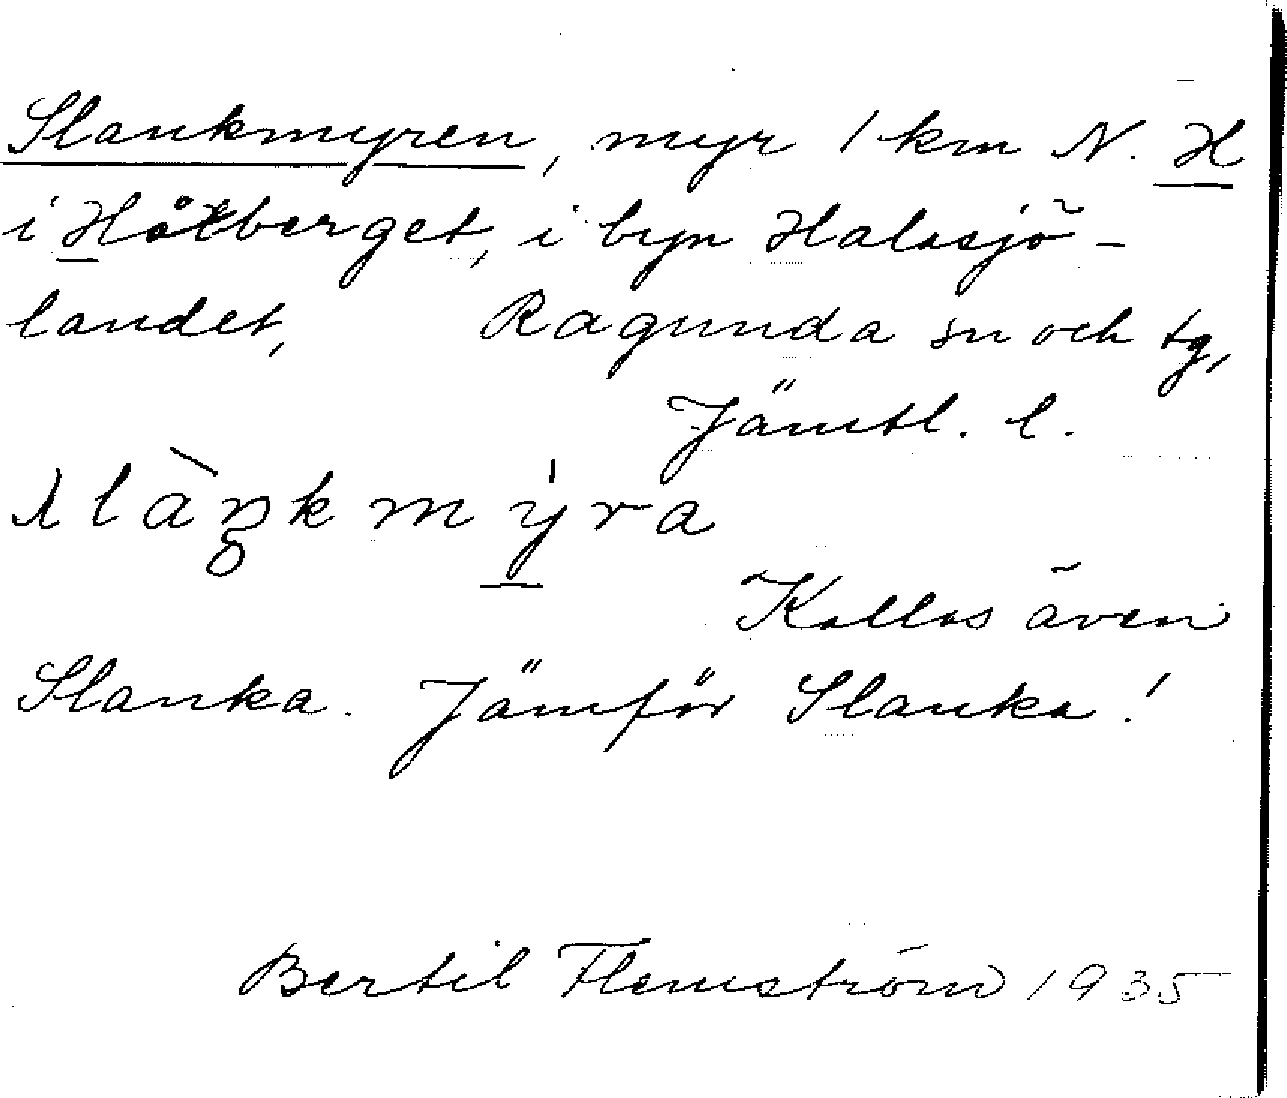 Slankmyren, myr 1 km N. H
i Hötberget, i byn Halasjö-
landet, Ragunda sn och tg,
Jämtl. l.
slàŋkmýra
Kallas även
Slanka. Jämför Slanka!
Bertil Flemström 1935